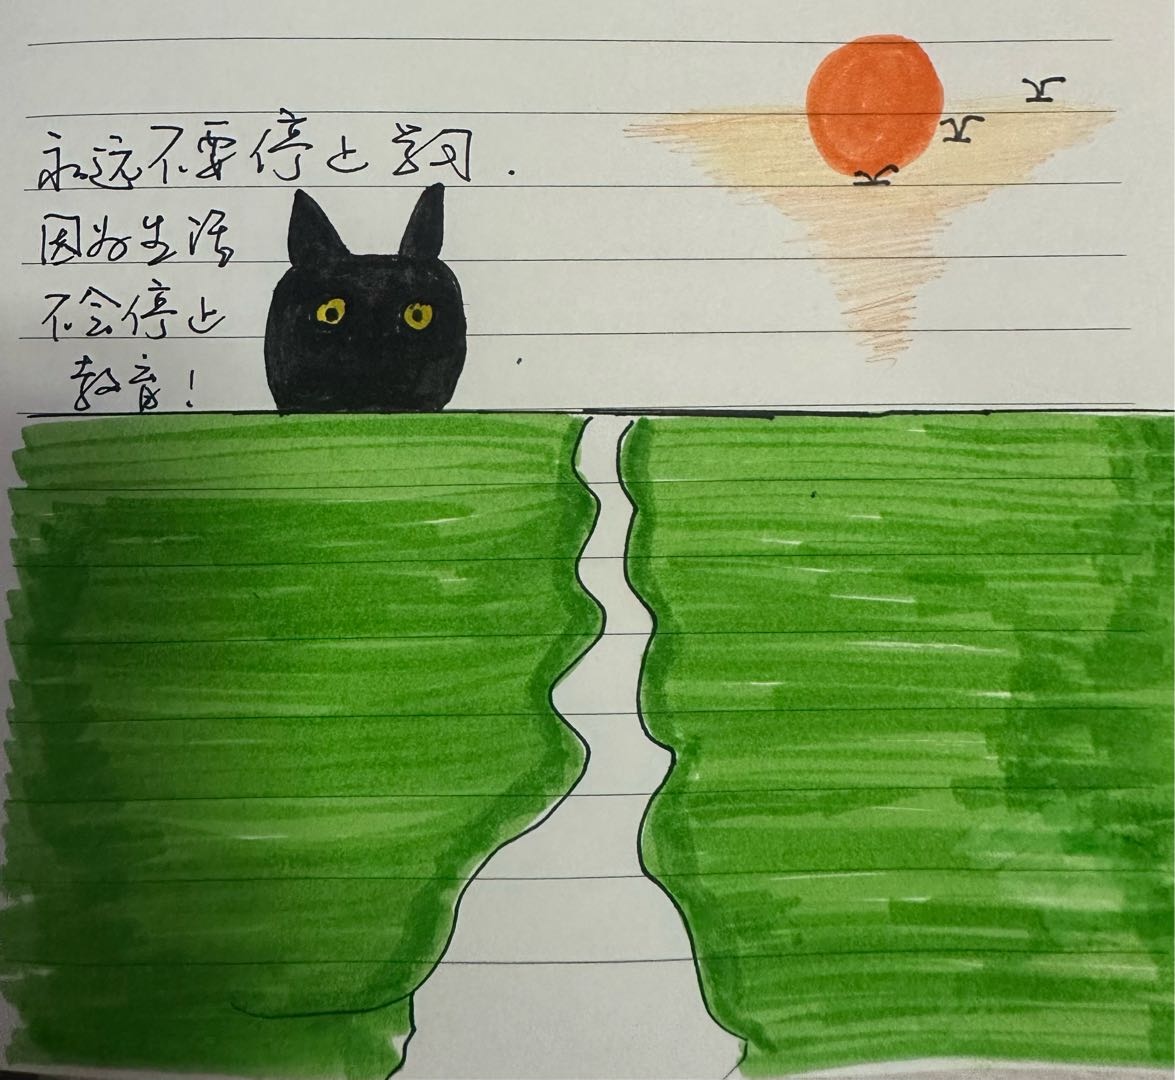 永远不要停止学习.
因为生活
不会停止
教育!